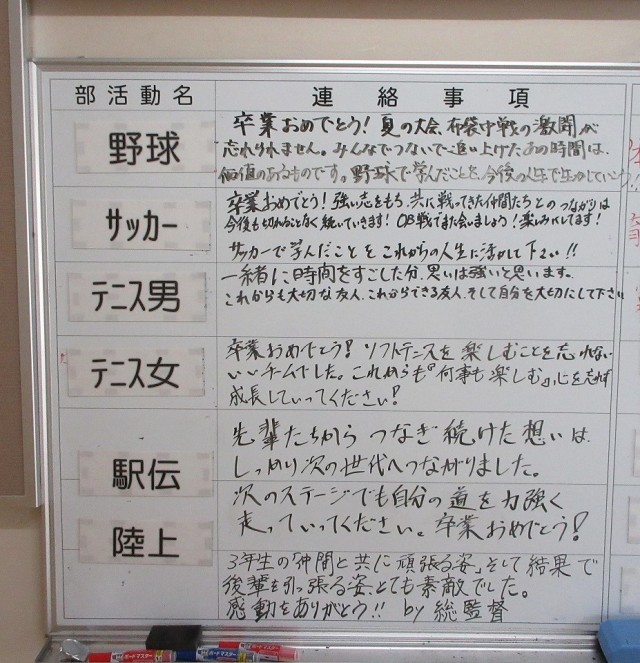 部活動名
連絡事項
野球
卒業おめでとう！夏の大会、布袋中戦の激闘が
忘れられません。みんなでつないで追い上げたあの時間は、
価値のあるものです。野球で学んだことを、今後の人生で生かしていこう!!
サッカー
卒業おめでとう！強い志をもち、共に戦ってきた仲間たちとのつながりは
今後も切れることなく続いていきます！OB戦でまた会いましょう！楽しみにしてます！
サッカーで学んだことをこれからの人生に活かして下さい!!
テニス男
一緒に時間をすごした分、思いは強いと思います。
これからも大切な友人、これからできる友人、そして自分を大切にして下さい
テニス女
卒業おめでとう！ソフトテニスを楽しむことを忘れない
いいチームでした。これからも『何事も楽しむ』心を忘れず
成長していってください！
駅伝
先輩たちからつなぎ続けた想いは、
しっかり次の世代へつながりました。
次のステージでも自分の道を力強く
陸上
走っていってください。卒業おめでとう！
3年生の「仲間と共に頑張る姿」そして結果で
後輩を引っ張る姿、とても素敵でした。
感動をありがとう!! by 総監督
ボードマスター